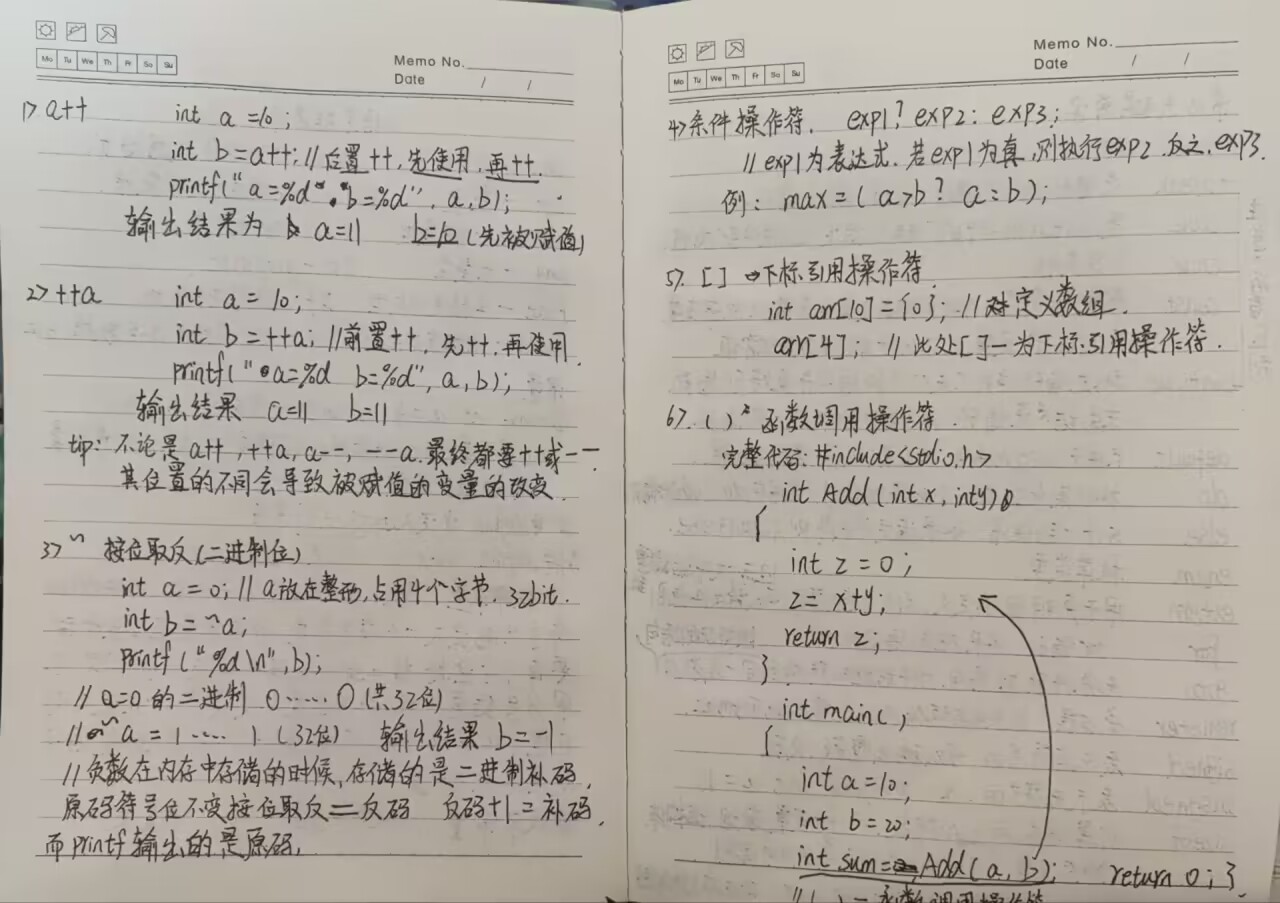 Mo Tu We Th Fr Sa Su
Memo No.
Date / /
1> a++ int a =10;
int b =a++; //后置++,先使用,再++.
printf("a=%d b=%d", a,b);
输出结果为 a=11 b=10(先被赋值)
2> ++a int a = 10;
int b =++a; //前置++,先++.再使用
printf("a=%d b=%d", a,b);
输出结果 a=11 b=11
tip: 不论是a++,++a,a--,--a.最终都要++或--.
其位置的不同会导致被赋值的变量的改变.
3> ~ 按位取反(二进制位)
int a =0; //a放在整形,占用4个字节,32bit.
int b =~a;
printf("%d\n",b);
//a=0的二进制 0......0(共32位)
//~a = 1.....1(32位) 输出结果 b=-1
//负数在内存中存储的时候,存储的是二进制补码,
原码符号位不变按位取反=反码 反码+1=补码,
而printf输出的是原码,
Mo Tu We Th Fr Sa Su
Memo No.
Date / /
4>条件操作符. exp1? exp2: exp3;
//exp1为表达式.若exp1为真,则执行exp2,反之,exp3.
例: max=(a>b? a:b);
5>. [] 下标引用操作符
int arr[10]={0}; //定义数组.
arr[4]; //此处[]一为下标引用操作符.
6>. () 函数调用操作符.
完整代码:#include<stdio.h>
int Add(int x,inty)
{
int z=0;
z= x+y;
return z;
}
int main(,
{
int a=10;
int b=20;
int sum= Add(a,b); return 0;}
//()一函数调用操作符